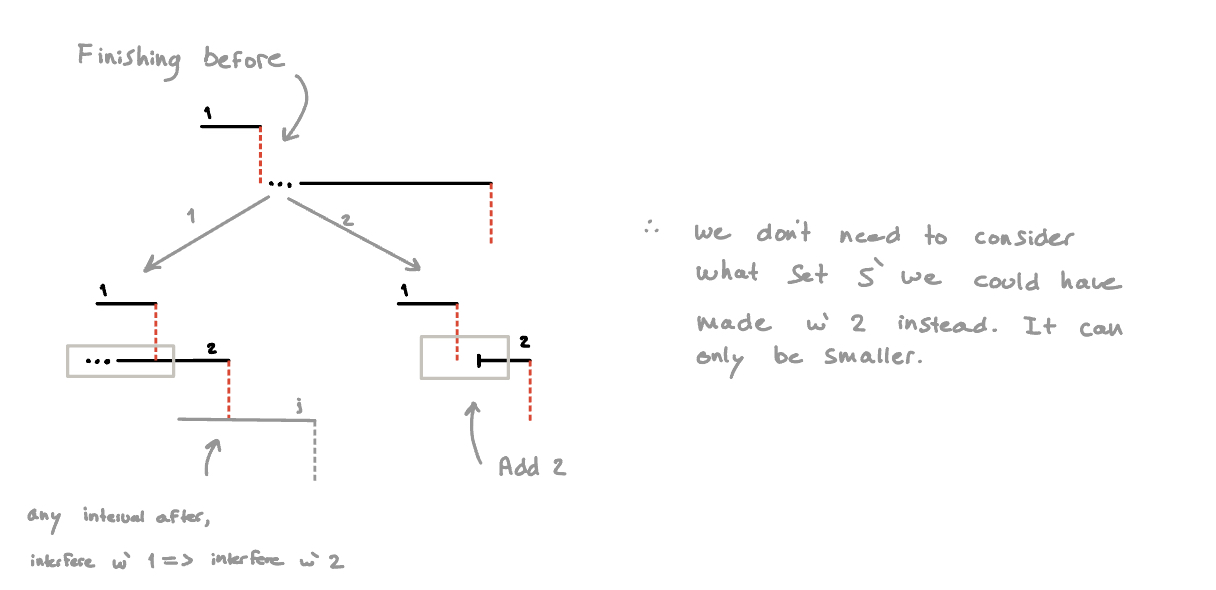 Finishing before
1
...
1
2
1
1
... 2
2
j
Add 2
any interval after,
interfere w` 1 => interfere w` 2
∴ we don't need to consider
what set S` we could have
made w` 2 instead. It can
only be smaller.